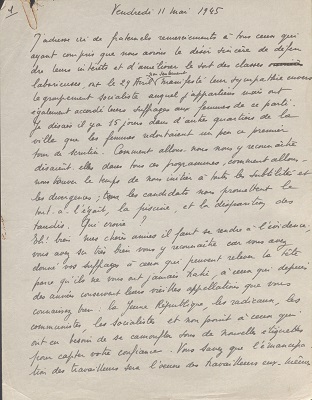 Vendredi 11 mai 1945
J'adresse ici de fraternels remerciements à tous ceux qui
ayant compris que nous avions le désir sincère de défen
dre leurs intérêts et d'améliorer le sort des classes
laborieuses ont le 29 Avril manifesté leur sympathie envers
le groupement socialiste auquel j'appartiens mais ont
également accordé leurs suffrages aux femmes de ce parti.
Je disais il y a 15 jours dans d'autres quartiers de la
ville que les femmes redoutaient un peu ce premier
tour de scrutin. Comment allons-nous nous y reconnaître
disaient-elles dans tous ces programmes, comment allons-
nous trouver le temps de nous initier à toutes les subtilités et
les divergences ; tous les candidats nous promettent le
tout-à-l'égout, la piscine, et la disparition des
taudis. Que croire ?
Eh! bien mes chers amis il faut se rendre à l'évidence,
vous avez su très bien vous y reconnaître car vous avez
donné vos suffrages à ceux qui peuvent relever la tête
parce qu'ils ne vous ont jamais trahi, à ceux qui depuis
des années conservent leurs vieilles appellations que vous
connaissez bien : la Jeune République, les radicaux, les
communistes, les socialistes et non point à ceux qui
ont eu besoin de se camoufler sous de nouvelles étiquettes
pour capter votre confiance. Vous savez que l'émancipa
tion des travailleurs sera l'oeuvre des travailleurs eux-mêmes